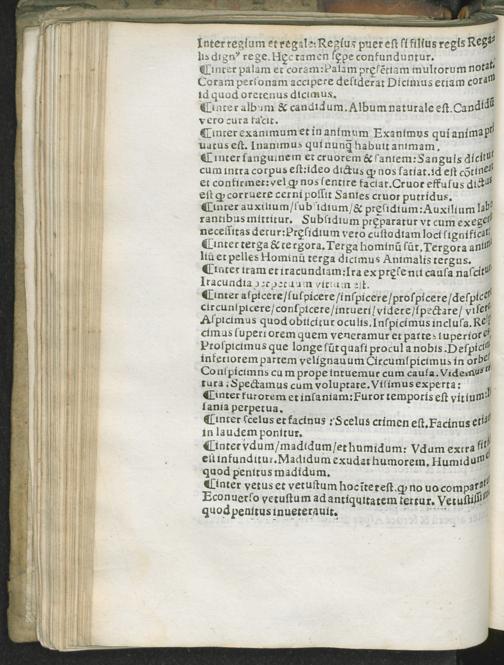 Inter regium et regale: Regius puer est si filius regis Rega
lis dignꝰ rege. Hęc tamen sępe confunduntur.
¶Inter palam et coram: Palam pręsẽtiam multorum notat.
Coram personam accipere desiderat Dicimus etiam coram
id quod oretenus dicimus.
¶Inter album & candidum. Album naturale est. Candidũ
vero cura facit.
¶inter exanimum et in animum Exanimus qui anima pri
uatus est. Inanimus qui nunq̃ habuit animam.
¶inter sanguinem et cruorem & saniem: Sanguis dicitur
cum intra corpus est: ideo dictus ꝙ nos satiat. id est cõtineat
et confirmet: vel ꝙ nos sentire faciat. Cruor effusus dictus
est ꝙ corruere cerni possit Sanies cruor putridus.
¶inter auxilium/subsidium/& pręsidium: Auxilium labo
rantibus mittitur. Subsidium pręparatur vt cum exegerit
necessitas detur: Pręsidium vero custodiam loci significat.
¶inter terga & tergora. Terga hominũ sũt. Tergora anima
liũ et pelles Hominũ terga dicimus Animalis tergus.
¶inter iram et iracundiam: Ira ex pręsenti causa nascitur
Iracundia perpetuum vitium est.
¶inter aspicere/suspicere/inspicere/prospicere/despicere
circunspicere/conspicere/intueri/videre/spectare/visere
Aspicimus quod obiicitur oculis. Inspicimus inclusa.
cimus superiorem quem veneramur et parte superior
Prospicimus que longe sũt quasi procul a nobis. Despicimus
inferiorem partem velignauum Circumspicimus in orbem
Conspicimus cum prope intuemur cum causa. Videmus
tura: Spectamus cum voluptate. Visimus experta:
¶inter furorem et insaniam: Furor temporis est vitium:
sania perpetua.
¶inter scelus et facinus: Scelus crimen est. Facinus etiam
in laudem ponitur.
¶inter vdum/madidum/et humidum: Vdum extra
eũ infunditur. Madidum exudat humorem. Humidum
quod penitus madidum.
¶inter vetus et vetustum hoc ĩterest. ꝙ no uo comparatur
Econuerso vetustum ad antiquitatem fertur. Vetustissimum
quod penitus inueterauit.